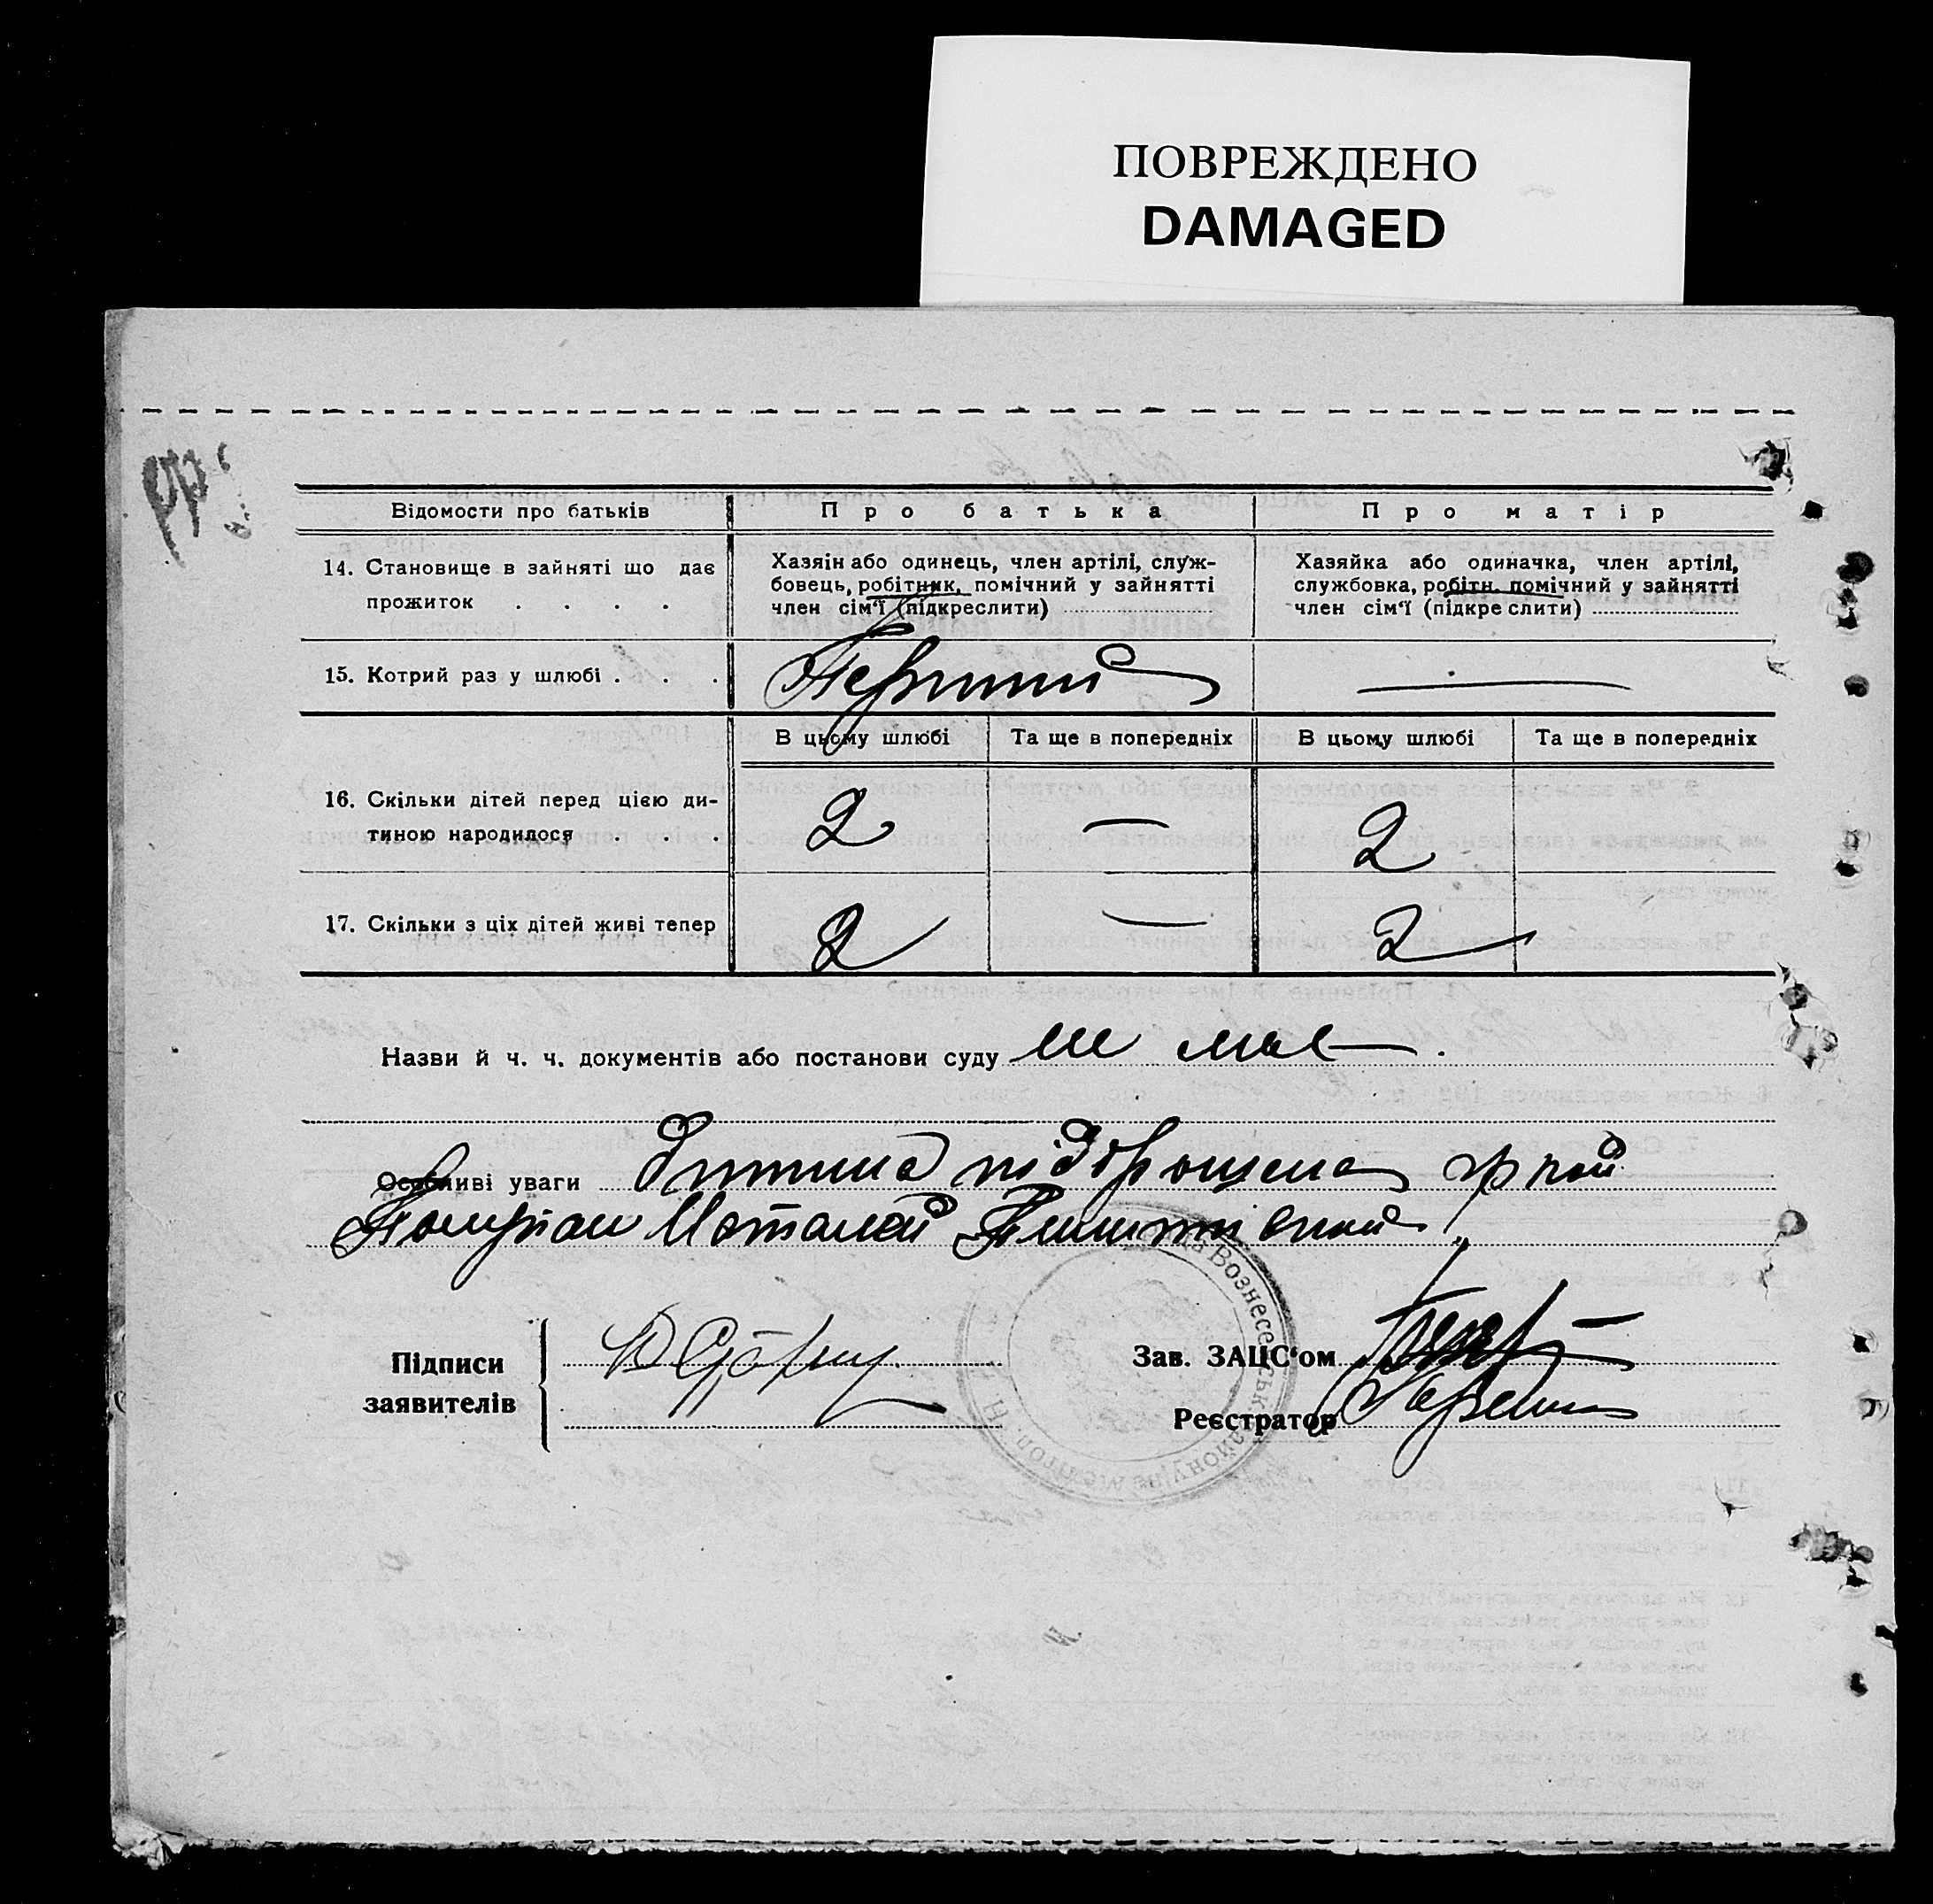 ПОВРЕЖДЕНО
DAMAGED
Відомости про батьків
Про батька
Про матір
14. Становище в зайняті що дає
прожиток . . . .
Хазяін або одинець, член артілі, служ-
бовець, робітник, помічний у зайнятті
член сім'ї (підкреслити)
Хазяйка або одиначка, член артілі,
службовка, робітн. помічний у зайнятті
член сім'ї (підкреслити)
15. Котрий раз у шлюбі . . .
Перший
—
В цьому шлюбі
Та ще в попередніх
В цьому шлюбі
Та ще в попередніх
16. Скільки дітей перед цією ди-
тиною народилося . . .
2
—
2
17. Скільки з ціх дітей живі тепер
2
—
2
Назви й ч. ч. документів або постанови суду не має.
Особливі уваги Дитина
Підписи
заявителів
Зав. ЗАЦС'ом
Реєстратор
Вознесенськ